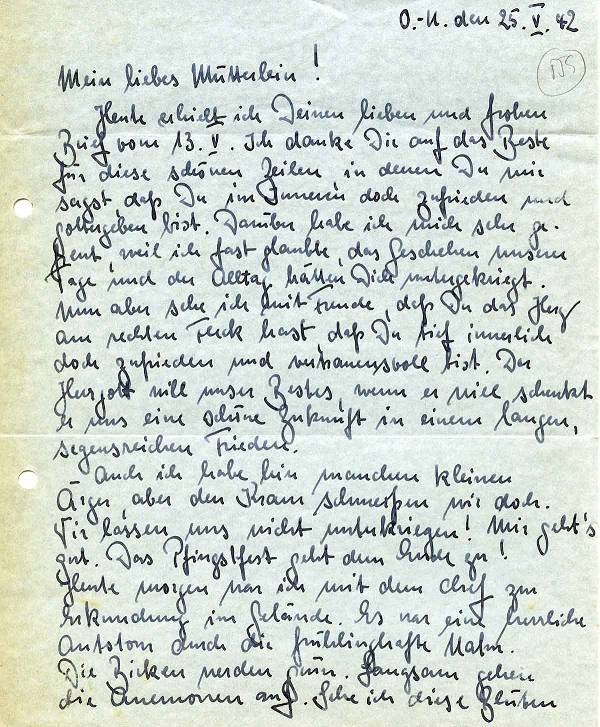 O.-U. den 25. V. 42
175
Mein liebes Mütterlein!
Heute erhielt ich Deinen lieben und frohen
Brief vom 13. V. Ich danke Dir auf das Beste
für diese schönen Zeilen in denen Du mir
sagst daß Du im Innern doch zufrieden und
gottergeben bist. Darüber habe ich mich sehr ge-
freut, weil ich fast glaubte, das Geschehen unserer
Tage und der Alltag hätten Dich untergekriegt.
Nun aber sehe ich mit Freude, daß Du das Herz
am rechten Fleck hast, daß Du tief innerlich
doch zufrieden und vertrauensvoll bist. Der
Herrgott will unser Bestes, wenn er will, schenkt
er uns eine schöne Zukunft in einem langen,
segensreichen Frieden.
Auch ich habe hin manchen kleinen
Ärger, aber den Kram schmeißen wir doch.
Wir lassen uns nicht unterkriegen! Mir geht's
gut. Das Pfingstfest geht dem Ende zu!
Heute morgen war ich mit dem Chef zur
Erkundung im Gelände. Es war eine herrliche
Autotour durch die frühlinghafte Natur.
Die Birken werden grün. Langsam gehen
die Anemonen auf. Sehe ich diese Blüten